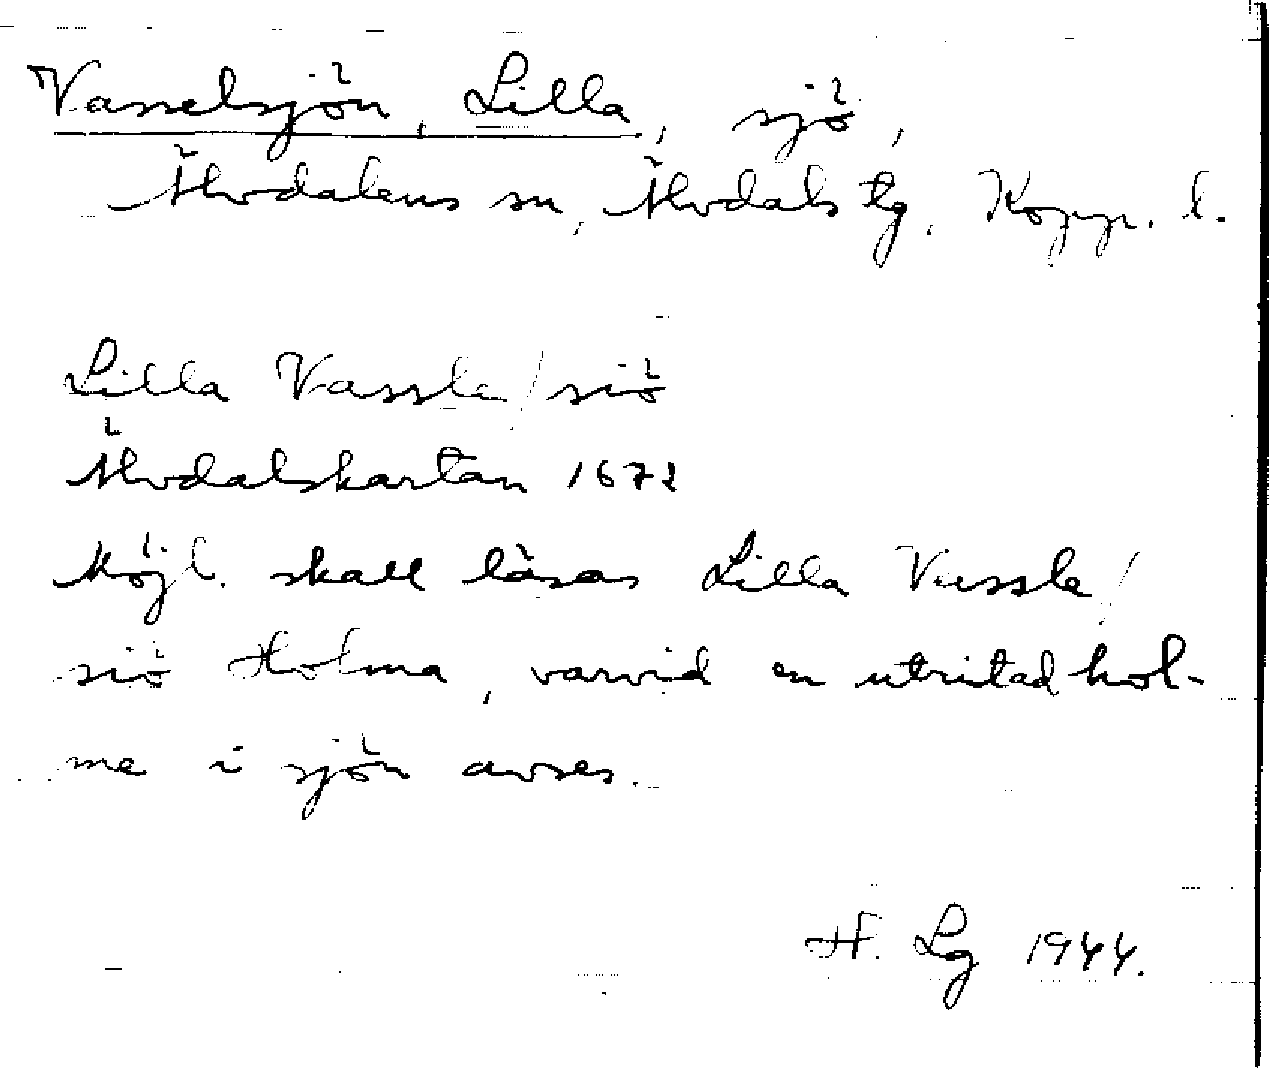 Vasselsjön, Lilla, sjö,
Älvdalens sn, Älvdals tg, Kopp. l.
Lilla Vassle/siö
Älvdalskartan 1672
Möjl. skall läsas Lilla Vassle/
siö Holma, varvid en utritad hol-
me i sjön avses.
H. Lg 1944.